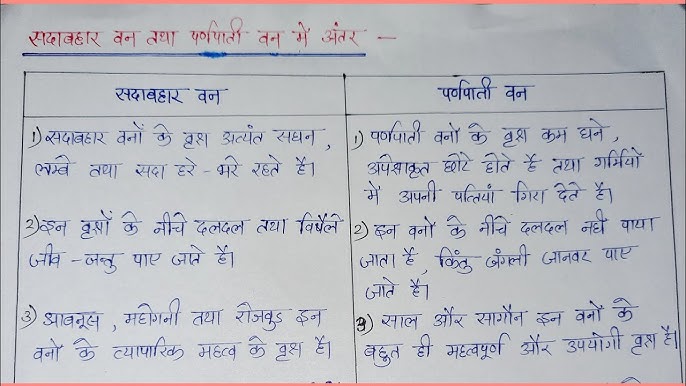 सदाबहार वन तथा पर्णपाती वन में अंतर –
सदाबहार वन
पर्णपाती वन
1) सदाबहार वनों के वृक्ष अत्यंत सघन,
लम्बे तथा सदा हरे-भरे रहते है।
1) पर्णपाती वनो के वृक्ष कम घने,
अपेक्षाकृत छोटे होते है तथा गर्मियों
में अपनी पत्तियां गिरा देते है।
2) इन वृक्षों के नीचे दलदल तथा विषैले
जीव-जन्तु पाए जाते है।
2) इन वनो के नीचे दलदल नही पाया
जाता है, किंतु जंगली जानवर पाए
जाते है।
3) आबनूस, महोगनी तथा रोजवुड इन
वनो के व्यापारिक महत्व के वृक्ष है।
3) साल और सागौन इन वनों के
बहुत ही महत्वपूर्ण और उपयोगी वृक्ष है।